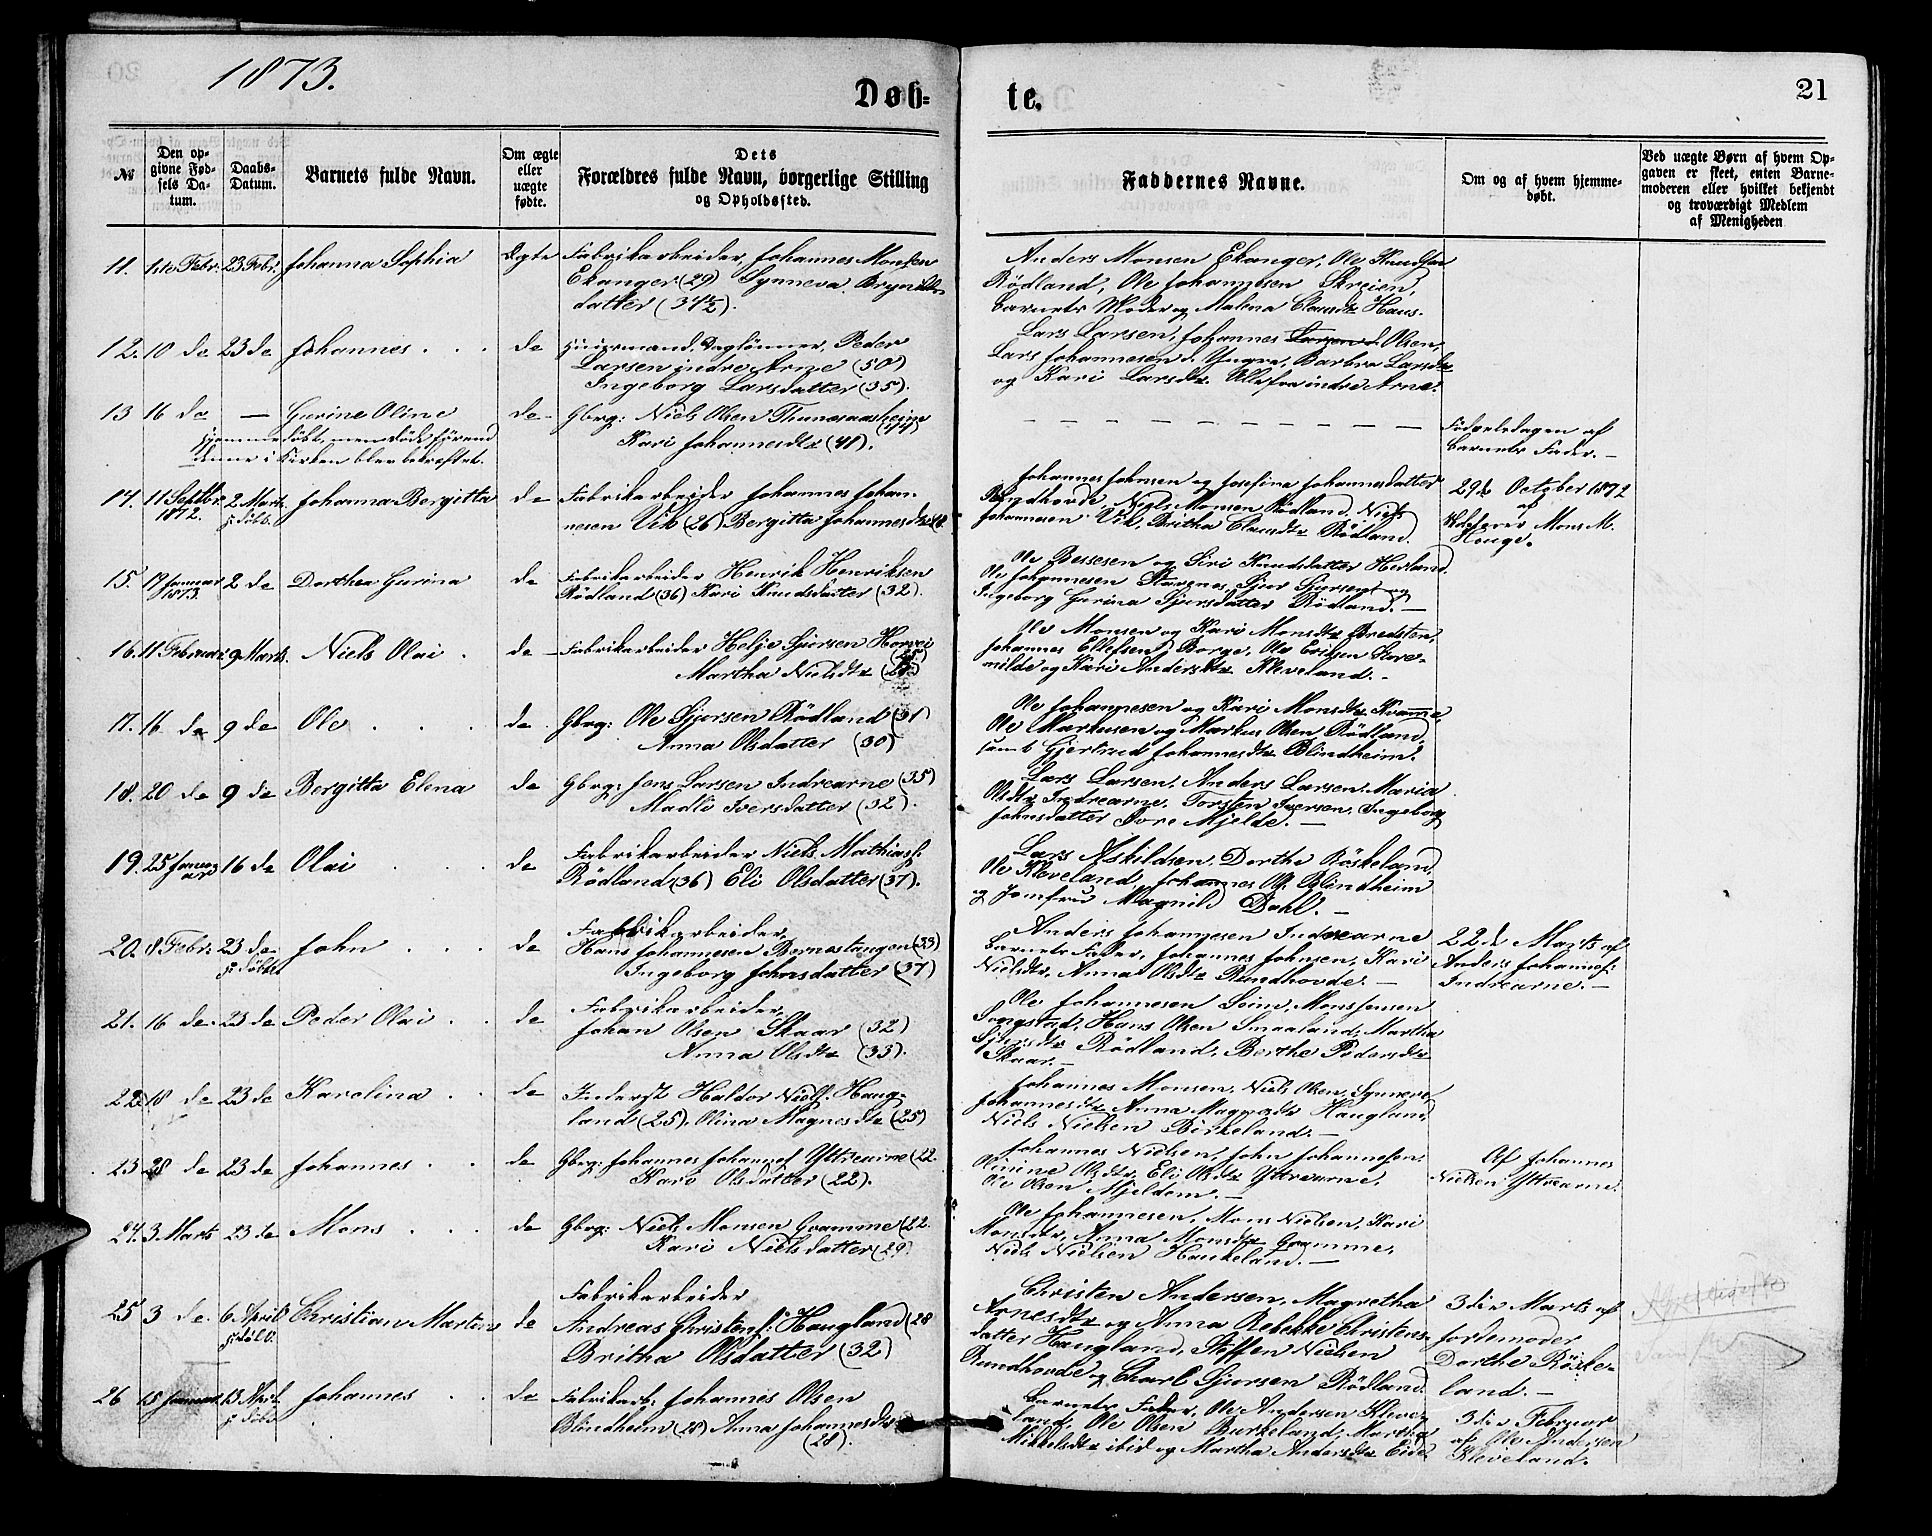 1873.
Døb-
te.
21
№
Den op-
givne Fød-
sels Da-
tum.
Daabs-
Datum.
Barnets fulde Navn.
Om ægte
eller
uægte
fødte.
Dets
Forældres fulde Navn, borgerlige Stilling
og Opholdssted.
Faddernes Navne.
Om og af hvem hjemme-
døbt.
Ved uægte Børn af hvem Op-
gaven er skeet, enten Barne-
moderen eller hvilket bekjendt
og troværdigt Medlem
af Menigheden
11. Febr. 23 Febr. Johanna Sophia Ægte Fabrikarbeider, Johannes Monsen
Ekanger (29) Synneva Brynilds-
datter (34½).
Anders Monsen Ekanger, Ole Knudsen
Rödland, Ole Johannesen Skreien,
Barnets Moder og Malena Clausdtr Haus.
12. 10 de 23 de Johannes de Huusmand, Daglönner, Peder
Larsen indre Arne (50)
Ingeborg Larsdatter (35).
Lars Larsen, Johannes Larsen Olsen,
Lars Johannesen d. Yngre, Barbra Larsdtr
og Kari Larsdtr. Alle fra indre Arne.
13 16 de — Gurine Oline de Gbrg: Niels Olsen Thunesaasheim
Hjemmedöbt, men döde förend
Kari Johannesdtr (41).
Födselsdagen af
Barnets Fader. —
14. 11 Septbr 2 Marts Johanna Bergitta de Fabrikarbeider Johannes Johan-
1872.
nesen Vik (26) Bergitta Johannesdtr
Johannes Johnsen og Josefina Johannesdatter
Rundhovde, Niels Monsen Rödland, Niels
Johannesen Vik, Britha Clausdtr Rödland.
29de October 1872
af
Mons M.
Houge.
15. 17 Januar 2 de Dorthea Gurina de Fabrikarbeider Henrik Henriksen
1873.
Rödland (36) Kari Knudsdatter (32).
Ole Bessesen og Siri Knudsdatter Herland,
Ole Johannesen Stavenes, Sjur Sjursen og
Ingeborg Gurina Sjursdatter Rödland. —
16. 11 Februar 9 Marts. Niels Olai de Fabrikarbeider Helje Sjursen Horvei
Martha Nielsdtr
Ole Monsen og Kari Monsdtr Bredsten,
Johannes Ellefsen Borge, Ole Eriksen Store-
milde og Kari Andersdtr Kleveland. —
17. 16 de 9 de Ole de Gbrg: Ole Sjursen Rödland (31)
Anna Olsdatter (30)
Ole Johannesen og Kari Monsdtr Kvamme,
Ole Markusen og Markus Olsen Rödland,
samt Gjertrud Johannesdtr Blindheim.
18. 20 de 9 de Bergitta Elena de Gbrg: Jens Larsen Indrearne (35)
Madli Iversdatter (32).
Lars Larsen, Anders Larsen, Maria
Olsdtr Indrearne, Torsten Iversen, Ingeborg
Johnsdatter Mjelde. —
19. 25 Januar 16 de Olai de Fabrikarbeider Niels Mathiass:
Rödland (36) Eli Olsdatter (37).
Lars Askildsen, Dorthe Röskeland,
Ole Kleveland, Johannes Blindheim
og Jomfru Magnild Dahl. —
20. 8 Febr. 23 de John de Fabrikarbeider,
Hans Johannesen Bornestangen (33)
Ingeborg Johnsdatter (37)
Anders Johannesen Indrearne
Barnets Fader, Johannes Johnsen, Kari
Nielsdtr, Anna Olsdtr Rundhovde. —
22de Marts af
Anders Johannes:
Indrearne. —
21. 16 de. 23 de Peder Olai de Fabrikarbeider,
Johan Olsen Skaar (32)
Anna Olsdtr (33).
Ole Johannesen Seim, Mons Jensen
Songstad, Hans Olsen Smaaland, Martha
Sjursdtr Rödland, Berthe Pedersdtr
Skaar. —
22. 18 de 23 de Karolina de Inderst Haldor Niels: Haug-
land (25), Olina Magnesdtr (25)
Johannes Monsen, Niels Olsen, Synneve
Johannesdtr, Anna Haugland,
Niels Nielsen Birkeland. —
23 28 de 23 de Johannes de Gbrg: Johannes Johannes: Yttrearne (22.
Kari Olsdatter (22).
Johannes Nielsen, John Johannesen,
Olivine Olsdtr, Eli Olsdtr Yttrearne,
Ole Olsen Mjeldem. —
Af Johannes
Nielsen Yttrearne.
24. 3 Marts 23 de Mons de Gbrg: Niels Monsen Gramme (22.
Kari Nielsdatter (29)
Ole Johannesen, Mons Nielsen, Kari
Monsdtr, Anna Monsdtr Gramme,
Niels Nielsen Haukeland. —
25 3 de. 6 April Christian Martin de Fabrikarbeider
Andreas Christens: Haugland (28
Britha Olsdatter (32)
Christen Andersen, Magretha
Arnesdtr og Anna Rebekke Christens-
datter Haugland, Steffen Nielsen
Rundhovde og Charl Sjursen Rödland.
3die Marts af
Jordemoder
Dorthe Röske-
land. —
26 15 Januar 13 April Johannes de Fabrikarb: Johannes Olsen
Blindheim (28) Anna Johannesdtr
(28).
Barnets Fader, Ole Andersen Kleve-
land, Ole Olsen Burkeland, Martha
Mikkelsdtr ibid og Martha Andersdtr Eide
3die Februar
af Ole Andersen
Kleveland.